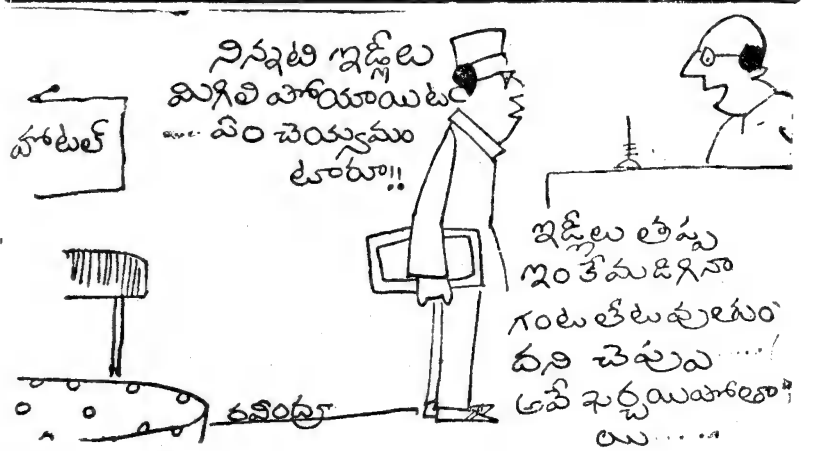 నిన్నటి ఇడ్లీలు
మిగిలి పోయాయిట
.... ఏం చెయ్యమం
టారూ!!
హోటల్
ఇడ్లీలు తప్ప
ఇం కేమడిగినా
గంట లేటవుతుం
దని చెప్పు ....!
అవే ఖర్చయిపోతా
యి .....
రవీంద్ర